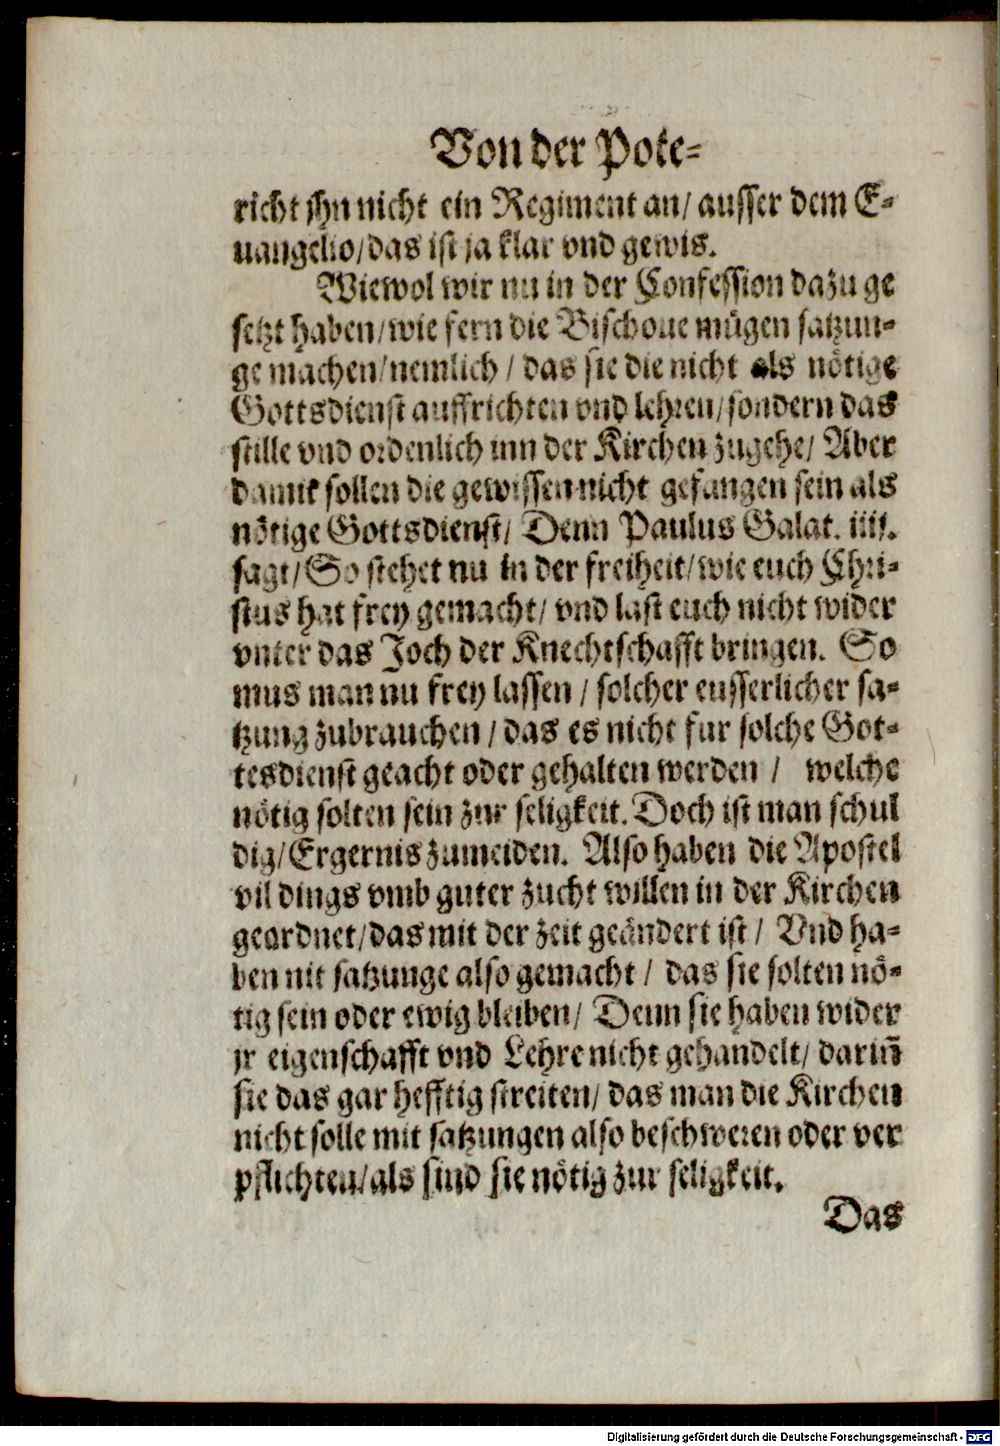 Von der Pote-
richt jhn nicht ein Regiment an/ ausser dem E-
uangelio/das ist ja klar vnd gewis.
Wiewol wir nu in der Confession dazu ge
setzt haben/wie fern die Bischoue mügen satzun-
ge machen/nemlich / das sie die nicht als nötige
Gottsdienst auffrichten vnd lehren/sondern das
stille vnd ordenlich inn der Kirchen zugehe/ Aber
damit sollen die gewissen nicht gefangen sein als
nötige Gottsdienst/ Denn Paulus Galat. iiij.
sagt/So stehet nu in der freiheit/wie euch Chri-
stus hat frey gemacht/ vnd last euch nicht wider
vnter das Joch der Knechtschafft bringen. So
mus man nu frey lassen / solcher eusserlicher sa-
tzung zubrauchen / das es nicht fur solche Got-
tesdienst geacht oder gehalten werden / welche
nötig solten sein zur seligkeit. Doch ist man schul
dig/Ergernis zumeiden. Also haben die Apostel
vil dings vmb guter zucht willen in der Kirchen
geordnet/das mit der zeit geändert ist / Vnd ha-
ben nit satzunge also gemacht / das sie solten nö-
tig sein oder ewig bleiben/ Denn sie haben wider
jr eigenschafft vnd Lehre nicht gehandelt/ dariñ
sie das gar hefftig streiten/ das man die Kirchen
nicht solle mit satzungen also beschweren oder ver
pflichten/als sind sie nötig zur seligkeit.
Das
Digitalisierung gefördert durch die Deutsche Forschungsgemeinschaft - DFG